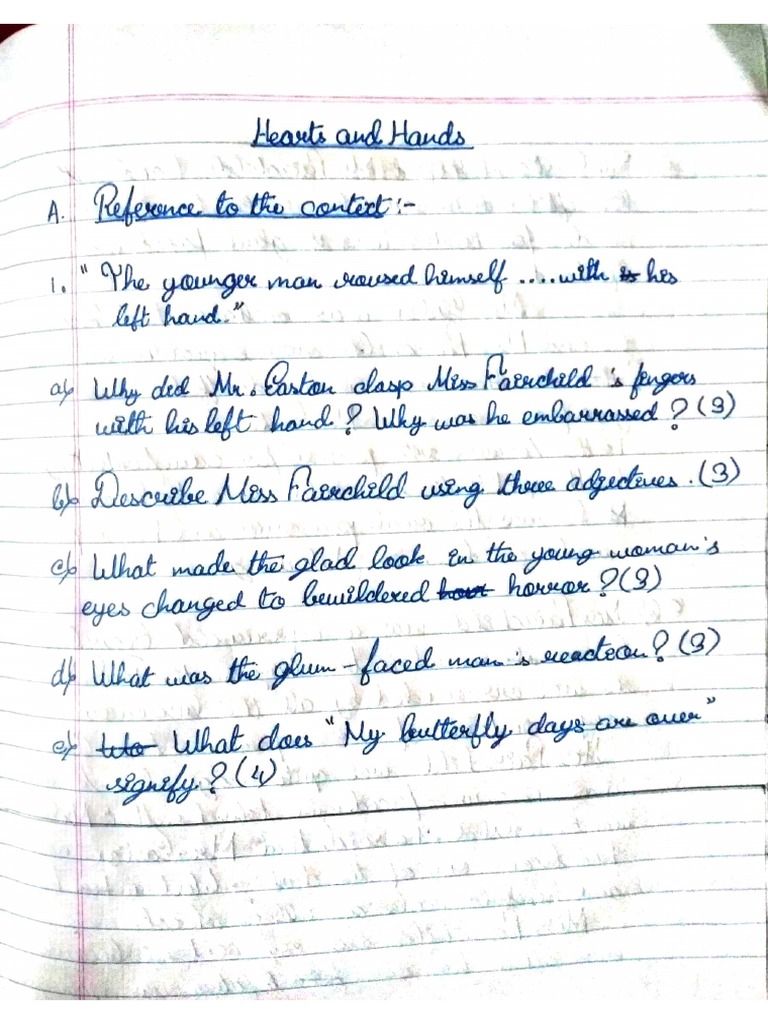 Hearts and Hands
A. Reference to the context:-
1. "The younger man roused himself ....with his
left hand."
a) Why did Mr. Easton clasp Miss Fairchild's fingers
with his left hand? Why was he embarrassed? (3)
b) Describe Miss Fairchild using three adjectives. (3)
c) What made the glad look in the young woman's
eyes changed to bewildered horror? (3)
d) What was the glum-faced man's reaction? (3)
e) What does "My butterfly days are over"
signify? (4)